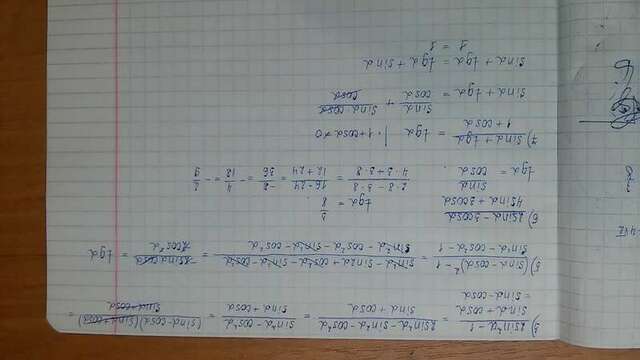 3) (2sin²α − 1)/(sinα + cosα) = (2sin²α − sin²α − cos²α)/(sinα + cosα) = (sin²α − cos²α)/(sinα + cosα) = (sinα − cosα)(sinα + cosα)/(sinα + cosα) =
= sinα − cosα
5) ((sinα − cosα)² − 1)/(sin²α − cos²α − 1) = (sin²α − sin2α + cos²α − sin²α − cos²α)/(sin²α − cos²α − sin²α − cos²α) = (−2sinα cosα)/(−2cos²α) = tgα
6) (2sinα − 3cosα)/(4sinα + 3cosα) tgα = 3/8
tgα = sinα/cosα . (2·8 − 3·8)/(4·3 + 3·8) = (16 − 24)/(12 + 24) = −8/36 = −4/18 = −2/9
7) (sinα + tgα)/(1 + cosα) = tgα | · 1 + cosα ≠ 0
sinα + tgα = sinα/cosα + sinα cosα/cosα
sinα + tgα = tgα + sinα
1 = 1